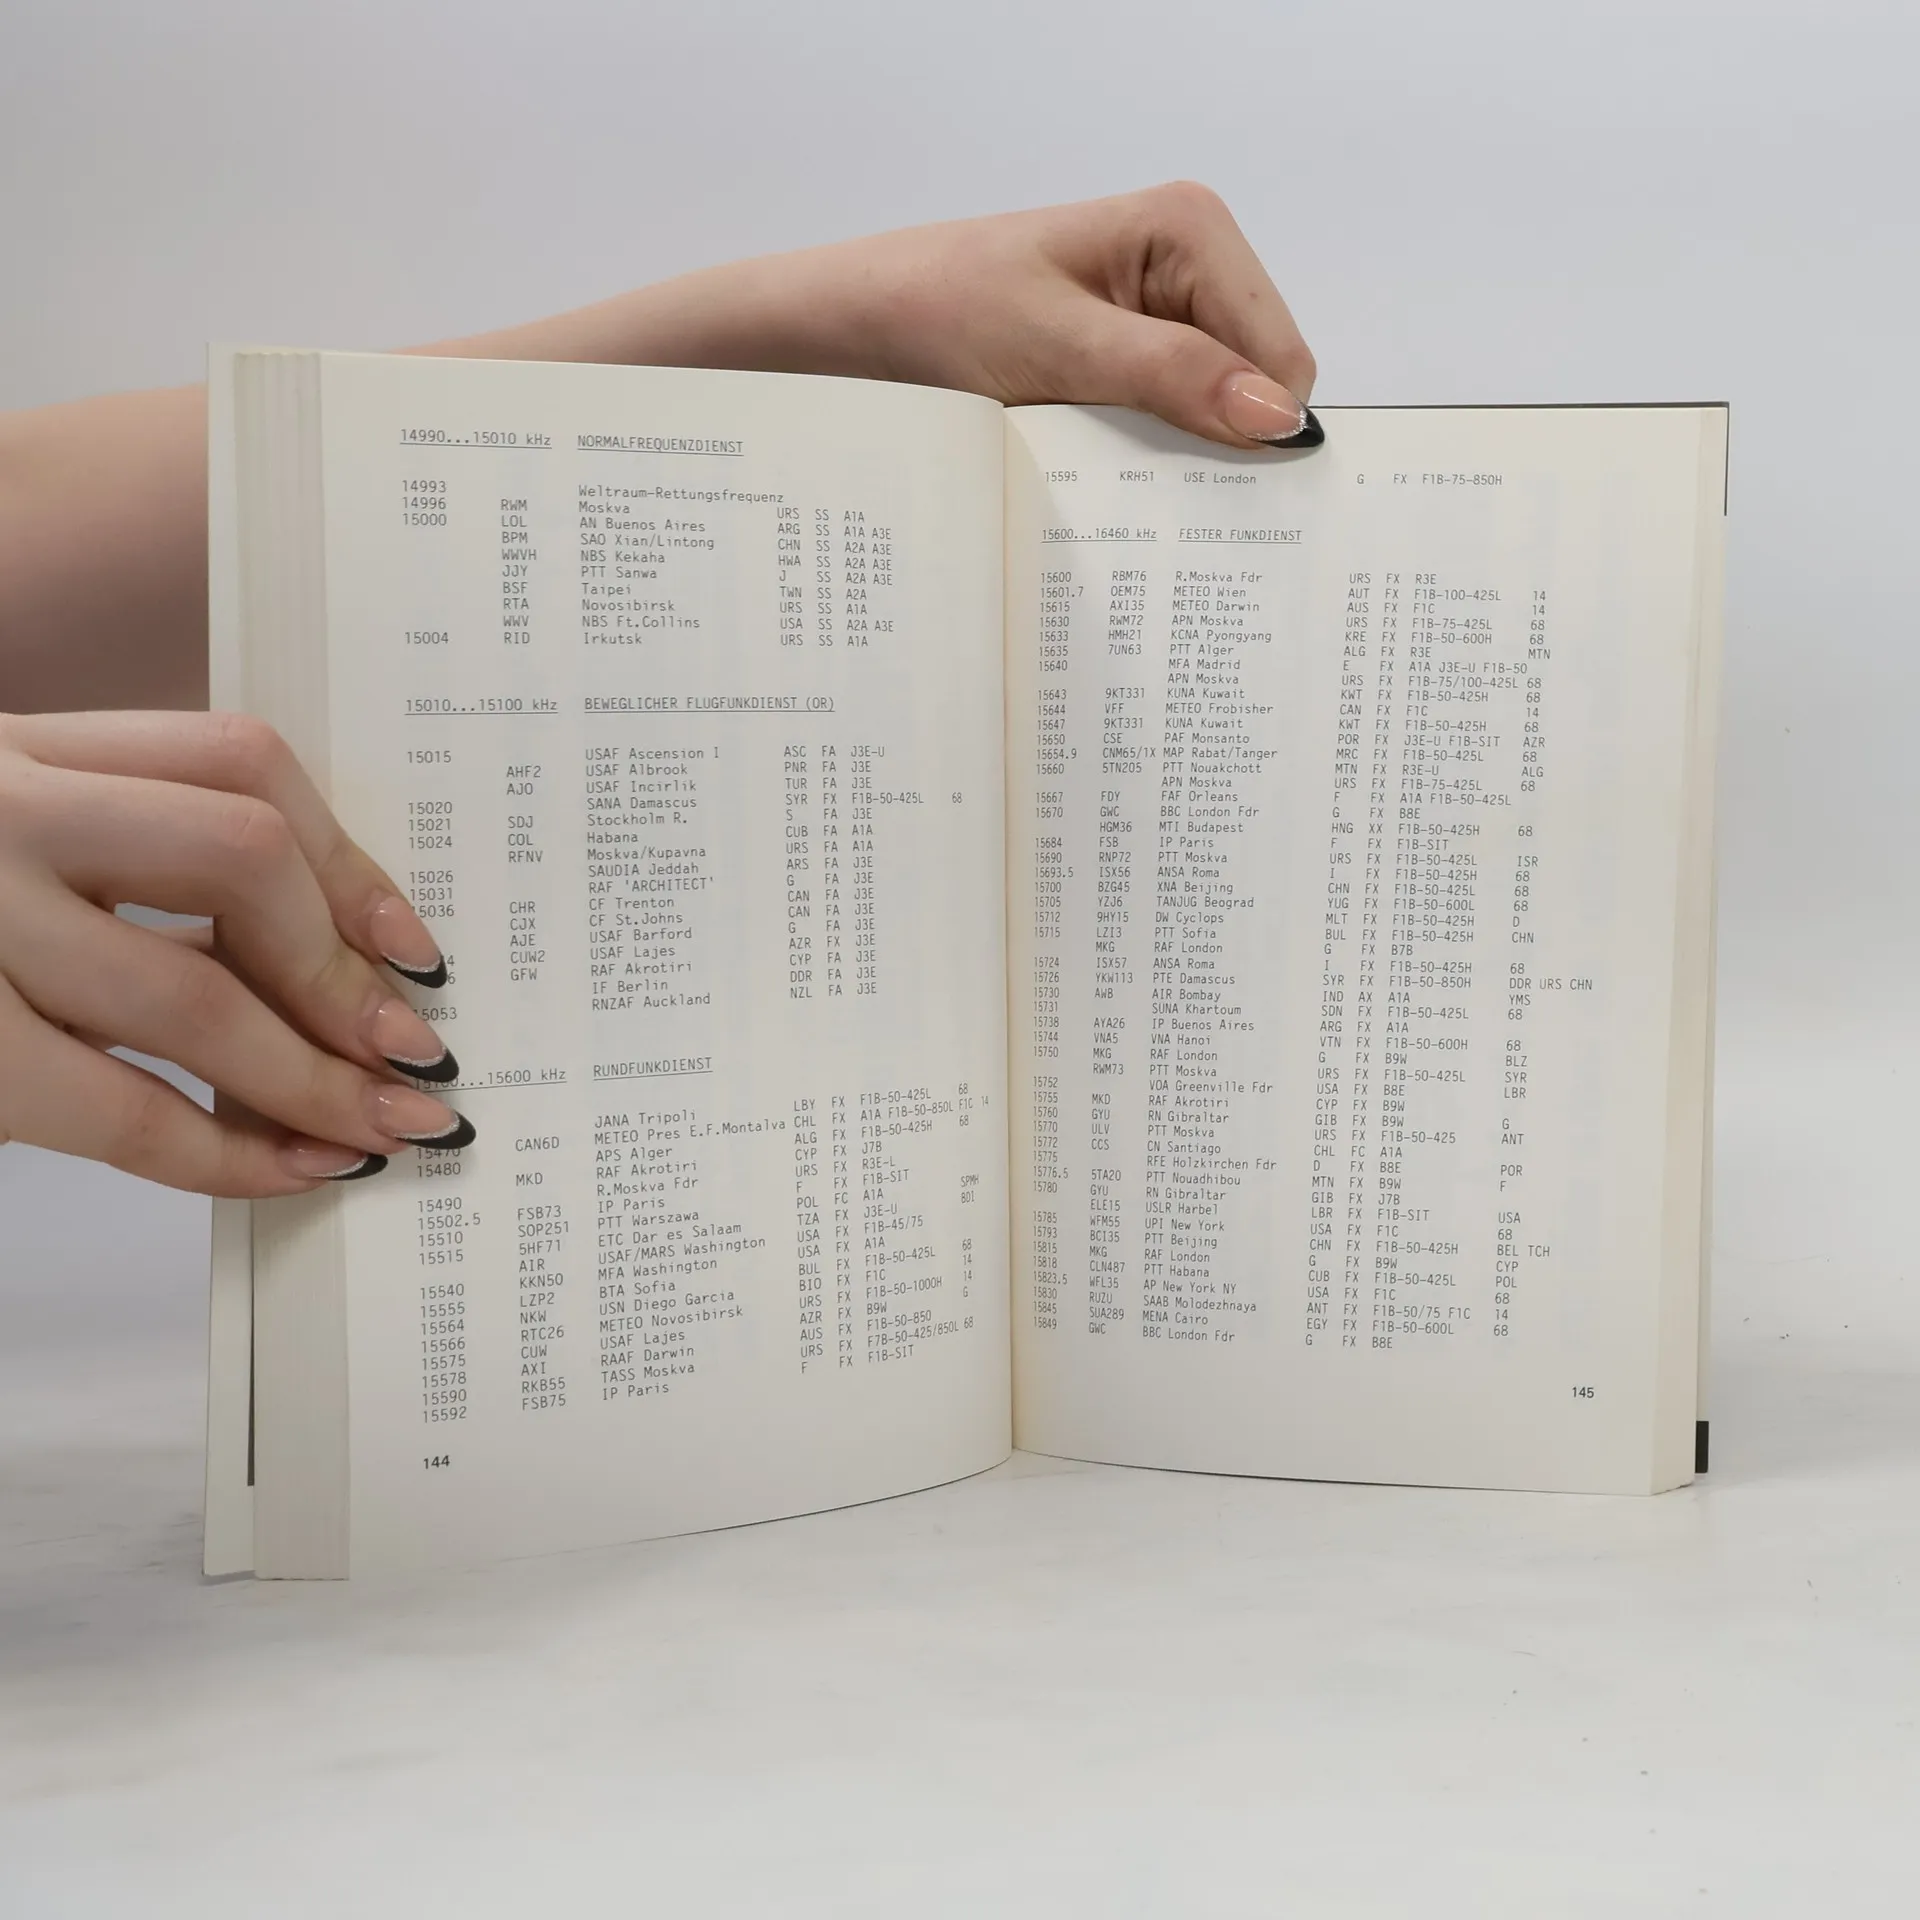 14990...15010 kHz NORMALFREQUENZDIENST
14993 Weltraum-Rettungsfrequenz
14996 RWM Moskva URS SS A1A
15000 LOL AN Buenos Aires ARG SS A1A A3E
BPM SAO Xian/Lintong CHN SS A2A A3E
WWVH NBS Kekaha HWA SS A2A A3E
JJY PTT Sanwa J SS A2A A3E
BSF Taipei TWN SS A2A
RTA Novosibirsk URS SS A1A
WWV NBS Ft.Collins USA SS A2A A3E
15004 RID Irkutsk URS SS A1A
15010...15100 kHz BEWEGLICHER FLUGFUNKDIENST (OR)
15015 USAF Ascension I ASC FA J3E-U
AHF2 USAF Albrook PNR FA J3E
AJO USAF Incirlik TUR FA J3E
15020 SANA Damascus SYR FX F1B-50-425L 68
15021 SDJ Stockholm R. S FA J3E
15024 COL Habana CUB FA A1A
RFNV Moskva/Kupavna URS FA A1A
15026 SAUDIA Jeddah ARS FA J3E
15031 RAF 'ARCHITECT' G FA J3E
15036 CHR CF Trenton CAN FA J3E
CJX CF St.Johns CAN FA J3E
AJE USAF Barford G FA J3E
CUW2 USAF Lajes AZR FX J3E
GFW RAF Akrotiri CYP FA J3E
IF Berlin DDR FA J3E
15053 RNZAF Auckland NZL FA J3E
15100...15600 kHz RUNDFUNKDIENST
JANA Tripoli LBY FX F1B-50-425L 68
15470 CAN6D METEO Pres E.F.Montalva CHL FX A1A F1B-50-850L F1C 14
15480 APS Alger ALG FX F1B-50-425H 68
MKD RAF Akrotiri CYP FX J7B
15490 R.Moskva Fdr URS FX R3E-L
15502.5 FSB73 IP Paris F FX F1B-SIT
15510 SOP251 PTT Warszawa POL FC A1A SPMH
15515 5HF71 ETC Dar es Salaam TZA FX J3E-U BDI
AIR USAF/MARS Washington USA FX F1B-45/75
15540 KKN50 MFA Washington USA FX A1A
15555 LZP2 BTA Sofia BUL FX F1B-50-425L 68
15564 NKW USN Diego Garcia BIO FX F1C 14
15566 RTC26 METEO Novosibirsk URS FX F1B-50-1000H 14
15575 CUW USAF Lajes AZR FX B9W G
15578 AXI RAAF Darwin AUS FX F1B-50-850
15590 RKB55 TASS Moskva URS FX F7B-50-425/850L 68
15592 FSB75 IP Paris F FX F1B-SIT
144
15595 KRH51 USE London G FX F1B-75-850H
15600...16460 kHz FESTER FUNKDIENST
15600 RBM76 R.Moskva Fdr URS FX R3E
15601.7 OEM75 METEO Wien AUT FX F1B-100-425L 14
15615 AXI35 METEO Darwin AUS FX F1C 14
15630 RWM72 APN Moskva URS FX F1B-75-425L 68
15633 HMH21 KCNA Pyongyang KRE FX F1B-50-600H 68
15635 7UN63 PTT Alger ALG FX R3E MTN
15640 MFA Madrid E FX A1A J3E-U F1B-50
APN Moskva URS FX F1B-75/100-425L 68
15643 9KT331 KUNA Kuwait KWT FX F1B-50-425H 68
15644 VFF METEO Frobisher CAN FX F1C 14
15647 9KT331 KUNA Kuwait KWT FX F1B-50-425H 68
15650 CSE PAF Monsanto POR FX J3E-U F1B-SIT AZR
15654.9 CNM65/1X MAP Rabat/Tanger MRC FX F1B-50-425L 68
15660 5TN205 PTT Nouakchott MTN FX R3E-U ALG
APN Moskva URS FX F1B-75-425L 68
15667 FDY FAF Orleans F FX A1A F1B-50-425L
15670 GWC BBC London Fdr G FX B8E
HGM36 MTI Budapest HNG XX F1B-50-425H 68
15684 FSB IP Paris F FX F1B-SIT
15690 RNP72 PTT Moskva URS FX F1B-50-425L ISR
15693.5 ISX56 ANSA Roma I FX F1B-50-425H 68
15700 BZG45 XNA Beijing CHN FX F1B-50-425L 68
15705 YZJ6 TANJUG Beograd YUG FX F1B-50-600L 68
15712 9HY15 DW Cyclops MLT FX F1B-50-425H D
15715 LZI3 PTT Sofia BUL FX F1B-50-425H CHN
MKG RAF London G FX B7B
15724 ISX57 ANSA Roma I FX F1B-50-425H 68
15726 YKW113 PTE Damascus SYR FX F1B-50-850H DDR URS CHN
15730 AWB AIR Bombay IND AX A1A YMS
15731 SUNA Khartoum SDN FX F1B-50-425L 68
15738 AYA26 IP Buenos Aires ARG FX A1A
15744 VNA5 VNA Hanoi VTN FX F1B-50-600H 68
15750 MKG RAF London G FX B9W BLZ
RWM73 PTT Moskva URS FX F1B-50-425L SYR
15752 VOA Greenville Fdr USA FX B8E LBR
15755 MKD RAF Akrotiri CYP FX B9W
15760 GYU RN Gibraltar GIB FX B9W G
15770 ULV PTT Moskva URS FX F1B-50-425 ANT
15772 CCS CN Santiago CHL FC A1A
15775 RFE Holzkirchen Fdr D FX B8E POR
15776.5 5TA20 PTT Nouadhibou MTN FX B9W F
15780 GYU RN Gibraltar GIB FX J7B
ELE15 USLR Harbel LBR FX F1B-SIT USA
15785 WFM55 UPI New York USA FX F1C 68
15793 BCI35 PTT Beijing CHN FX F1B-50-425H BEL TCH
15815 MKG RAF London G FX B9W CYP
15818 CLN487 PTT Habana CUB FX F1B-50-425L POL
15823.5 WFL35 AP New York NY USA FX F1C 68
15830 RUZU SAAB Molodezhnaya ANT FX F1B-50/75 F1C 14
15845 SUA289 MENA Cairo EGY FX F1B-50-600L 68
15849 GWC BBC London Fdr G FX B8E
145